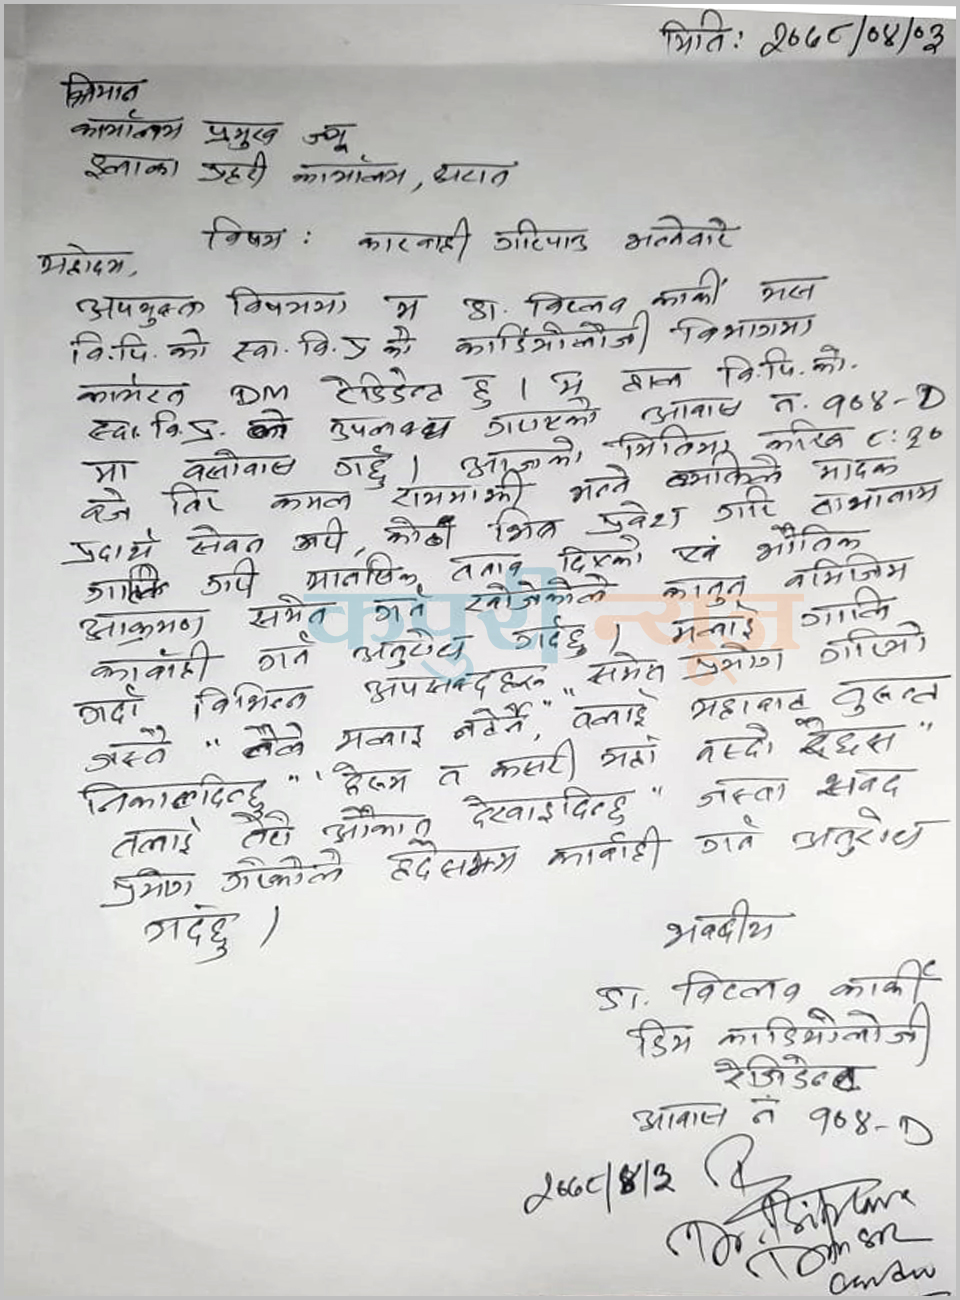 मिति: २०७८/०४/०३
श्रिमान
कार्यालय प्रमुख ज्यू
इलाका प्रहरी कार्यालय, धरान
विषय: कारवाही गरिपाउ भन्नेवारे
महोदय,
उपयुक्त विषयमा म डा. विप्लव कार्की यस
वि.पि.को स्वा.वि.प्र को कार्डियोलोजी विभागमा
कार्यरत DM रेजिडेन्ट हु । म हाल वि.पि.को.
स्वा.वि.प्र. को उपलब्ध गराएको आवास न. १०४-D
मा वसोवास गर्छु । आजको मितिमा करिव ८:३०
वजे तिर कमल राममाझी भन्ने व्यक्तिले मादक
प्रदार्थ सेवन गरी, कोठा भित्र प्रवेश गरि नाभानाम
गालि गरी मानसिक तनाव दिएको एवं भौतिक
आक्रमण समेत गर्न खोजेकोले कानुन वमिजिम
कार्वाही गर्न अनुरोध गर्दछु । मलाई गालि
गर्दा विभिन्न अपशब्दहरू समेत प्रयोग गरियो
जस्तै " तैले मलाइ नटेर्ने", तलाई यहाबाट तुरुन्त
निकालदिन्छु" 'हेरूम त कसरी यहाँ वस्दो रैछस"
तलाई तेरो औकात देखाइदिन्छु" जस्ता शव्द
प्रयोग गरेकोले हदैसम्म कार्वाही गर्न अनुरोध
गर्दछु ।
भवदीय
डा. विप्लव कार्की
डिम कार्डियोलोजी
रेजिडेन्ट
आवास नं १०४-D
२०७८/४/३
कपुरी न्यूज